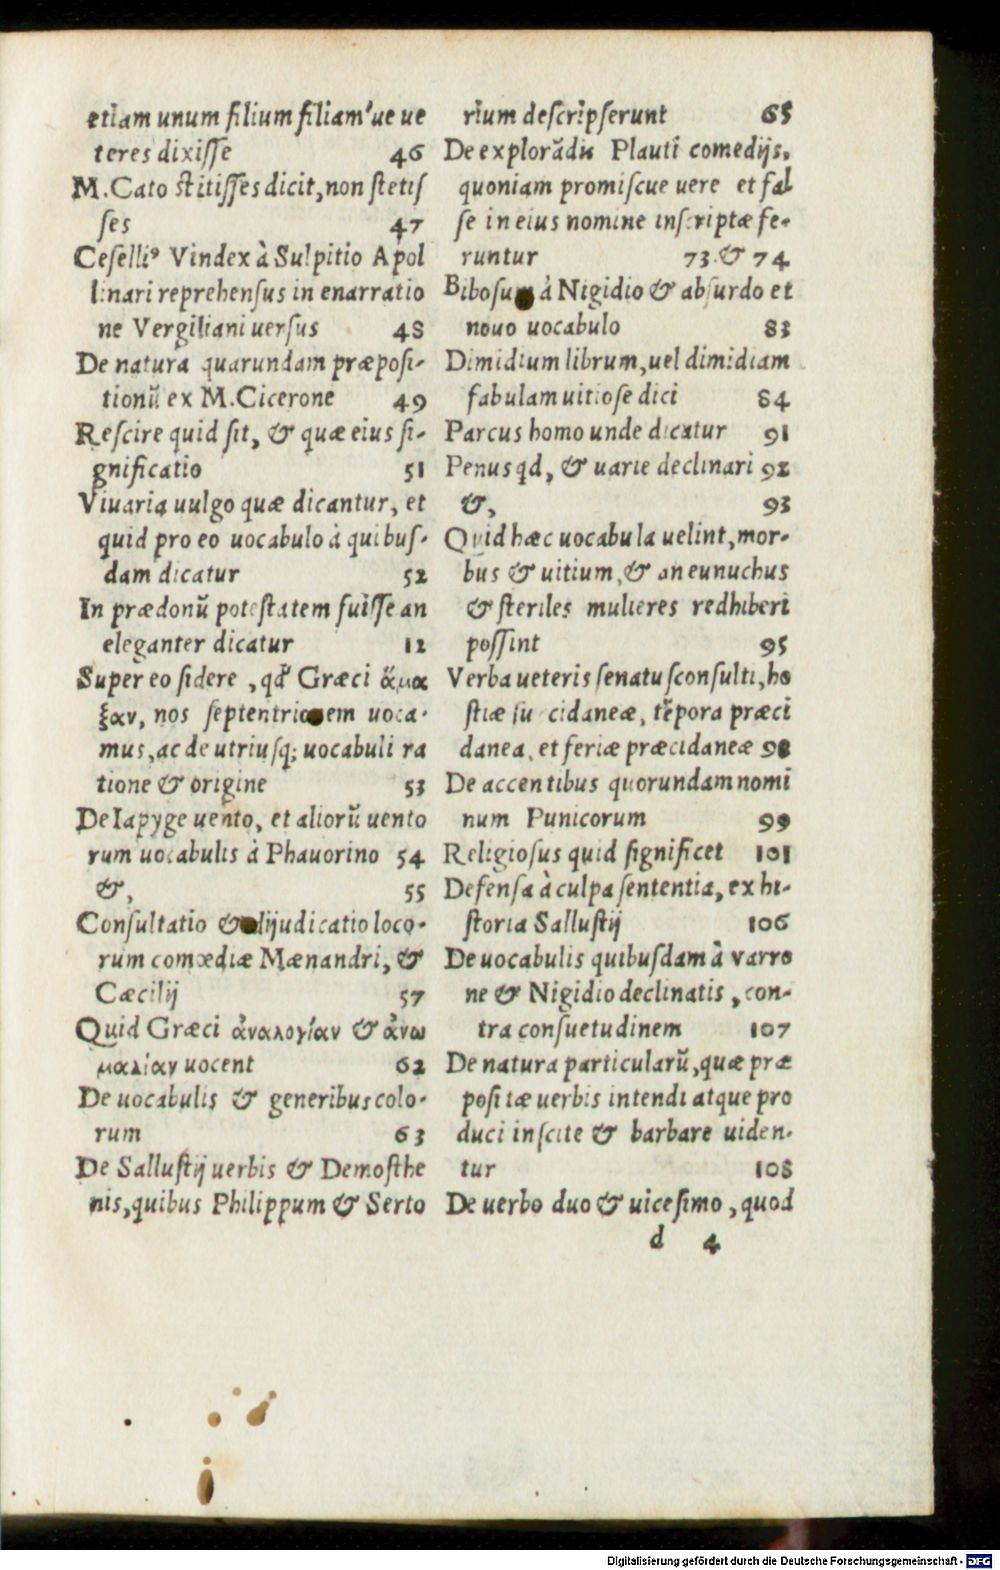 etiam unum filium filiam'ue ue
teres dixiſſe 46
M.Cato ſtitiſſes dicit, non ſtetiſ
ſes 47
Ceſelliꝰ Vindex à Sulpitio Apol
linari reprehenſus in enarratio
ne Vergiliani uerſus 48
De natura quarundam præpoſi-
tionũ ex M.Cicerone 49
Reſcire quid ſit, & quæ eius ſi-
gnificatio 51
Viuaria uulgo quæ dicantur, et
quid pro eo uocabulo à quibuſ-
dam dicatur 52
In prædonũ poteſtatem fuiſſe an
eleganter dicatur 12
Super eo ſidere, qđ Græci ἅμα
ξαν, nos ſeptentrionem uoca-
mus, ac de utriuſq; uocabuli ra
tione & origine 53
De Iapyge uento, et aliorũ uento
rum uocabulis à Phauorino 54
&, 55
Conſultatio & dijudicatio loco-
rum comœdiæ Mænandri, &
Cæcilij 57
Quid Græci ἀναλογίαν & ἀνω
μαλίαν uocent 62
De uocabulis & generibus colo-
rum 63
De Salluſtij uerbis & Demoſthe
nis, quibus Philippum & Serto
rium deſcripſerunt 65
De explorãdis Plauti comedijs,
quoniam promiſcue uere et fal
ſe in eius nomine inſcriptæ fe-
runtur 73.& 74
Biboſum à Nigidio & abſurdo et
nouo uocabulo 83
Dimidium librum, uel dimidiam
fabulam uitioſe dici 84
Parcus homo unde dicatur 91
Penus qd, & uarie declinari 92
&, 93
Quid hæc uocabula uelint, mor-
bus & uitium, & an eunuchus
& ſteriles mulieres redhiberi
poſſint 95
Verba ueteris ſenatuſconſulti, ho
ſtiæ ſuccidaneæ, tẽpora præci
danea, et feriæ præcidaneæ 98
De accentibus quorundam nomi
num Punicorum 99
Religioſus quid ſignificet 101
Defenſa à culpa ſententia, ex hi-
ſtoria Salluſtij 106
De uocabulis quibuſdam à varro
ne & Nigidio declinatis, con-
tra conſuetudinem 107
De natura particularũ, quæ præ
poſitæ uerbis intendi atque pro
duci inſcite & barbare uiden-
tur 108
De uerbo duo & uiceſimo, quod
d 4
Digitalisierung gefördert durch die Deutsche Forschungsgemeinschaft - DFG